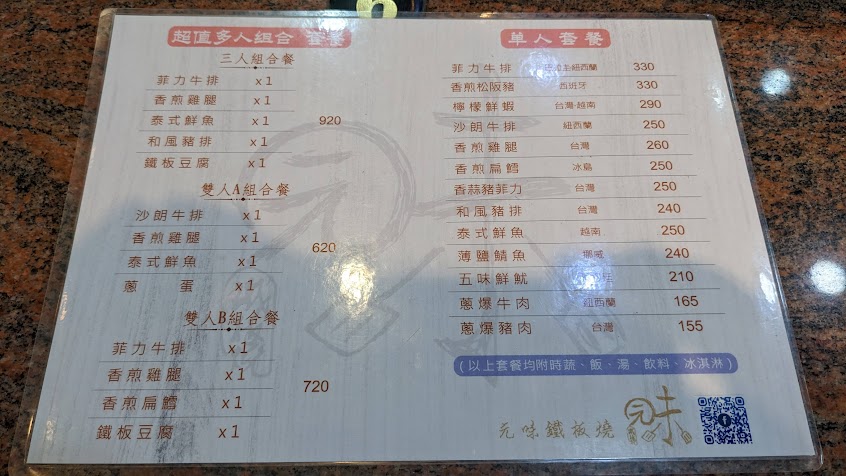 超值多人組合 套餐
三人組合餐
菲力牛排 x1
香煎雞腿 x1
泰式鮮魚 x1 920
和風豬排 x1
鐵板豆腐 x1
雙人A組合餐
沙朗牛排 x1
香煎雞腿 x1
泰式鮮魚 x1 620
蔥 蛋 x1
雙人B組合餐
菲力牛排 x1
香煎雞腿 x1
香煎扁鱈 x1 720
鐵板豆腐 x1
單人套餐
菲力牛排 紐西蘭 330
香煎松阪豬 西班牙 330
檸檬鮮蝦 台灣·越南 290
沙朗牛排 紐西蘭 250
香煎雞腿 台灣 260
香煎扁鱈 冰島 250
香蒜豬菲力 台灣 250
和風豬排 台灣 240
泰式鮮魚 越南 250
薄鹽鯖魚 挪威 240
五味鮮魷 210
蔥爆牛肉 紐西蘭 165
蔥爆豬肉 台灣 155
(以上套餐均附時蔬、飯、湯、飲料、冰淇淋)
元味鐵板燒 元味